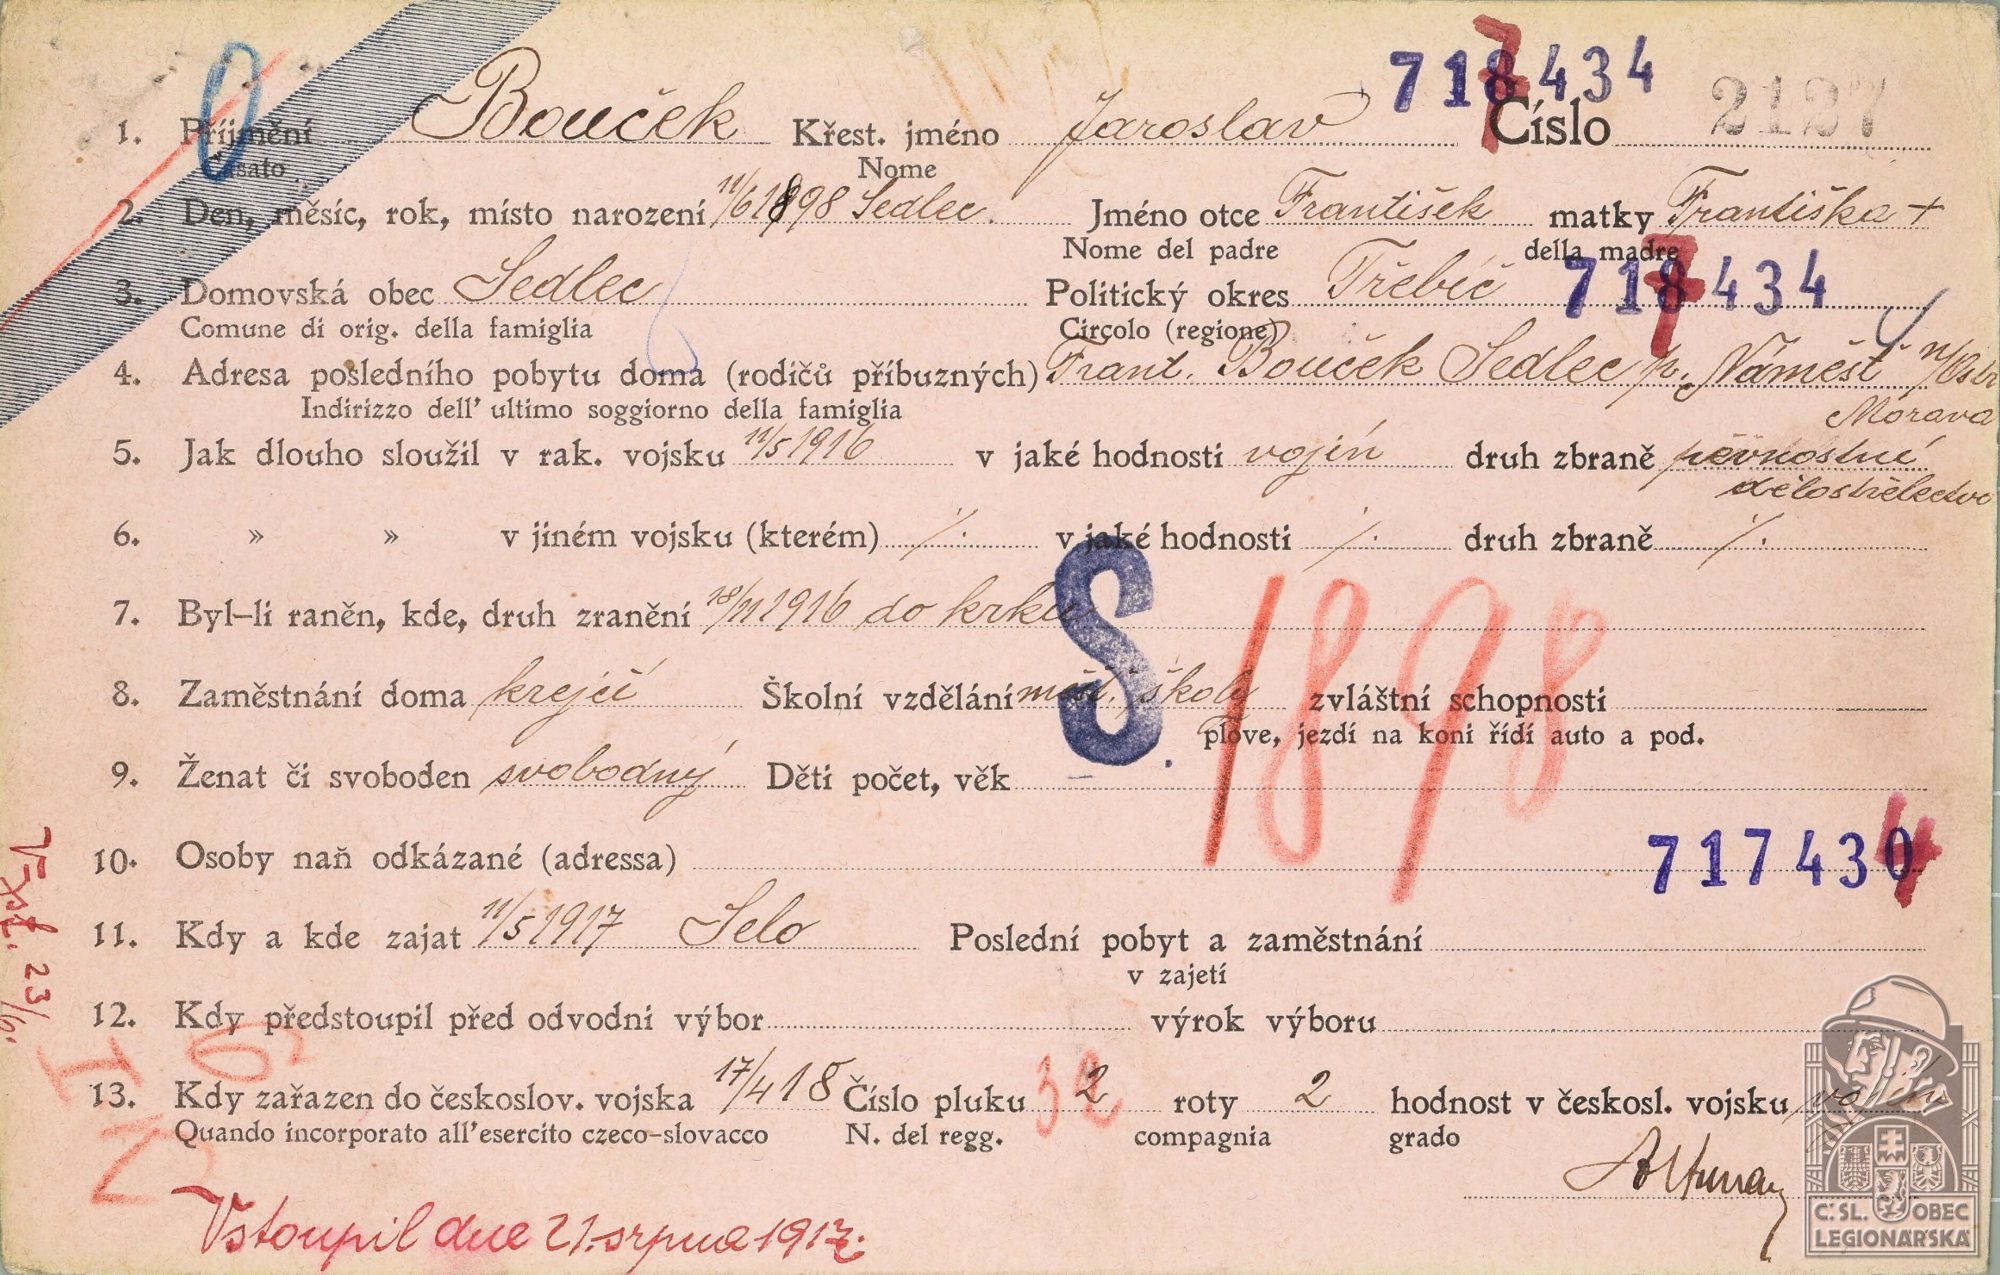 718434
1. Příjmení Bouček Křest. jméno Jaroslav Číslo 2127
Casato Nome
2. Den, měsíc, rok, místo narození 11/6 1898 Sedlec. Jméno otce František matky Františka +
Nome del padre della madre
3. Domovská obec Sedlec Politický okres Třebíč 718434
Comune di orig. della famiglia Circolo (regione)
4. Adresa posledního pobytu doma (rodičů příbuzných) Frant. Bouček Sedlec p. Náměšť n/Osl
Indirizzo dell' ultimo soggiorno della famiglia Morava
5. Jak dlouho sloužil v rak. vojsku 11/5 1916 v jaké hodnosti vojín druh zbraně pěvnostní
dělostřelectvo
6. » » v jiném vojsku (kterém) /. v jaké hodnosti /. druh zbraně /.
7. Byl-li raněn, kde, druh zranění 18/11 1916 do krku
S. 1898
8. Zaměstnání doma krejčí Školní vzdělání měšť. školy zvláštní schopnosti
plove, jezdí na koni řídí auto a pod.
9. Ženat či svoboden svobodný Děti počet, věk
717434
10. Osoby naň odkázané (adressa)
11. Kdy a kde zajat 11/5 1917 Selo Poslední pobyt a zaměstnání
v zajetí
12. Kdy předstoupil před odvodní výbor výrok výboru
13. Kdy zařazen do českoslov. vojska 17/4 18 Číslo pluku 32 roty 2 hodnost v českosl. vojsku vojín
Quando incorporato all'esercito czeco-slovacco N. del regg. compagnia grado
Vstoupil dne 21. srpna 1917.
Č.SL. OBEC
LEGIONÁŘSKÁ